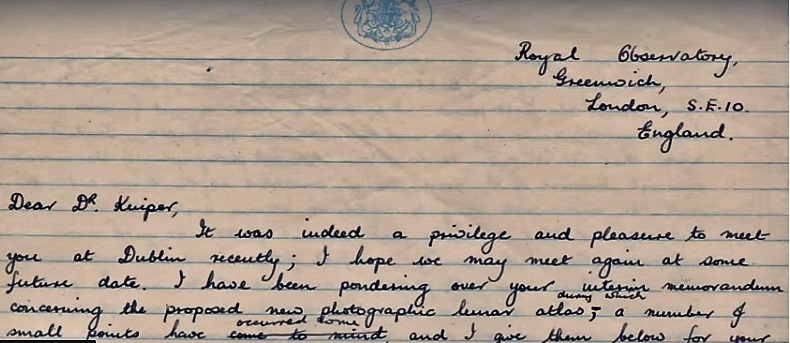 Royal Observatory,
Greenwich,
London, S.E.10.
England.
Dear Dr. Kuiper,
It was indeed a privilege and pleasure to meet
you at Dublin recently; I hope we may meet again at some
future date. I have been pondering over your interim memorandum
during which
concerning the proposed new photographic lunar atlas, a number of
occurred some
small points have come to mind, and I give them below for your